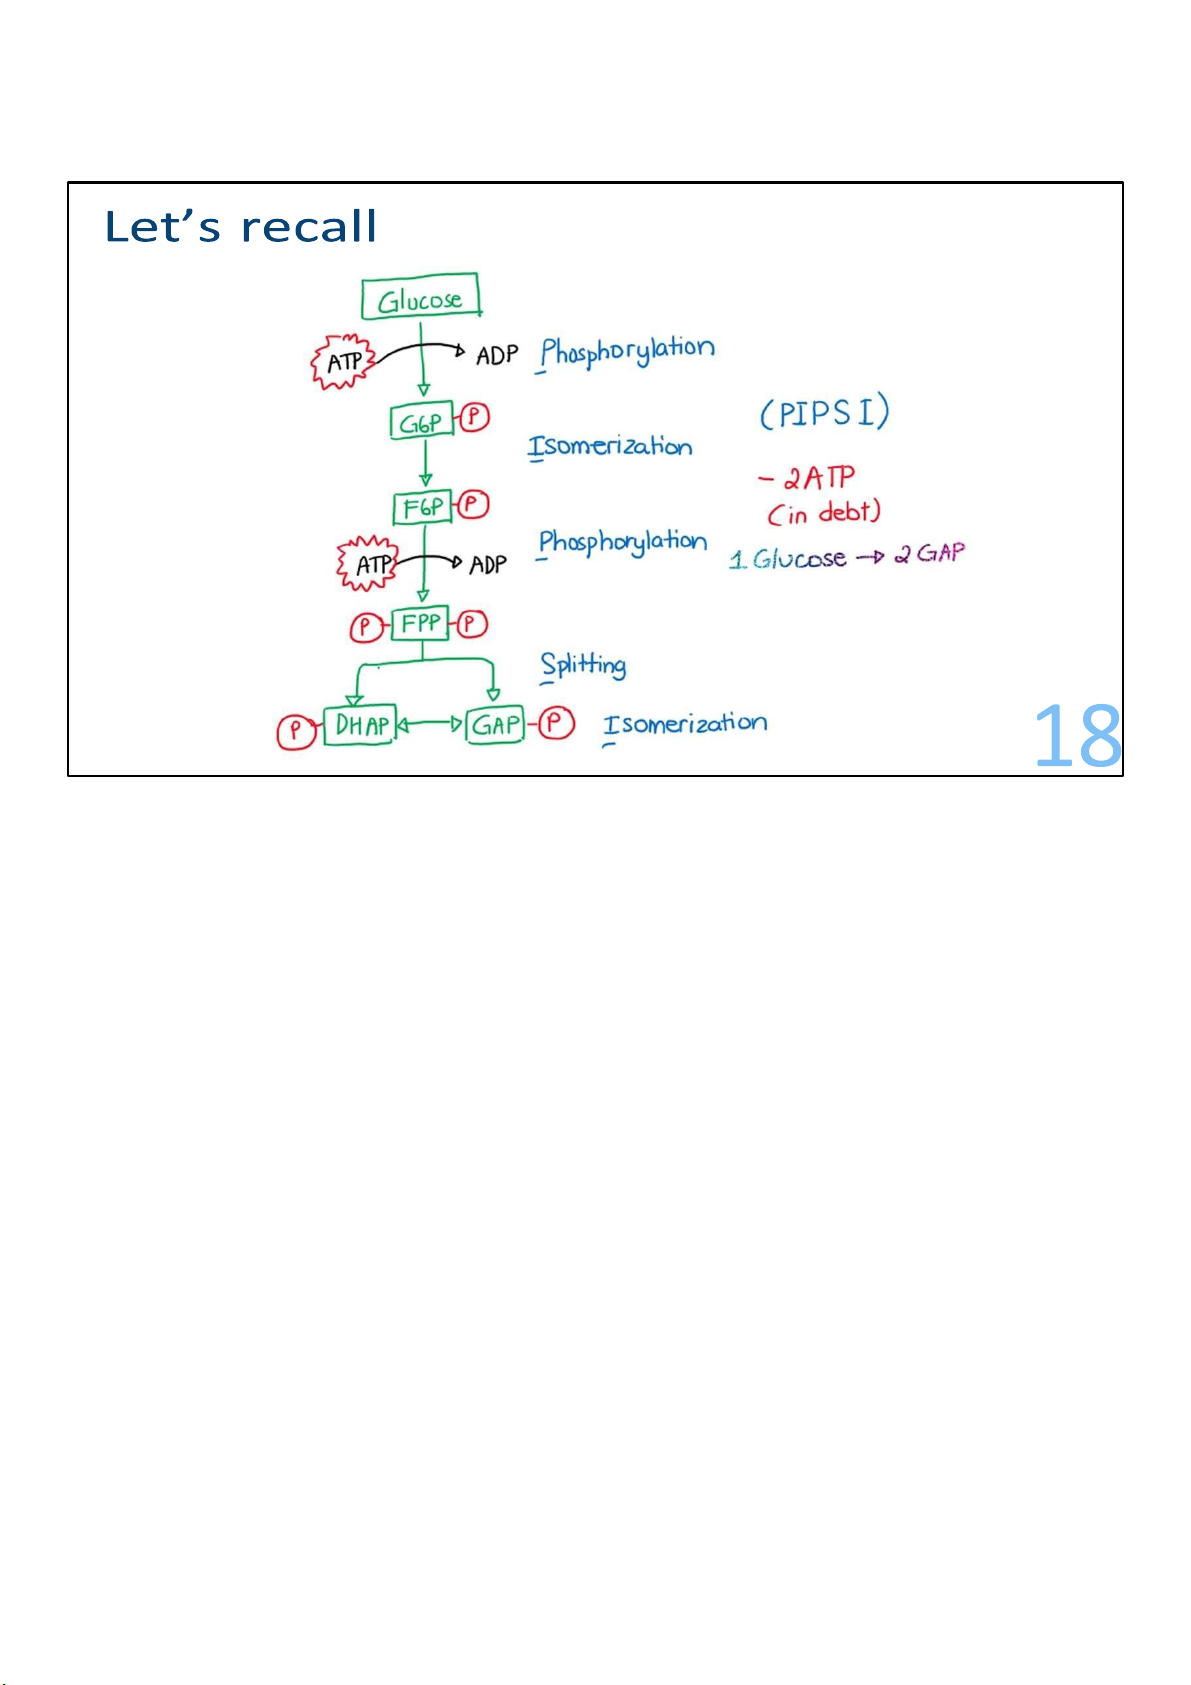 Let's recall
Glucose
ATP ADP Phosphorylation
G6P P
(PIPSI)
Isomerization
- 2ATP
F6P P
(in debt)
Phosphorylation
1 Glucose → 2 GAP
ATP ADP
P FPP P
Splitting
P DHAP GAP P Isomerization
18